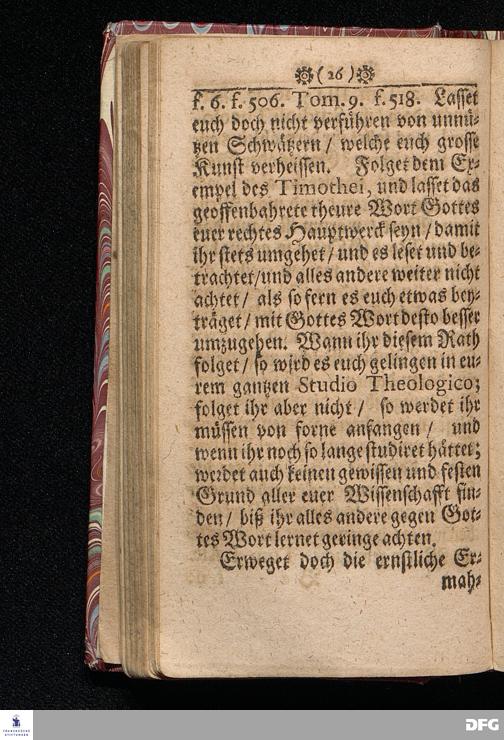 ( 26 )
f. 6. f. 506. Tom. 9. f. 518. Lasset
euch doch nicht verführen von unnü-
tzen Schwätzern / welche euch grosse
Kunst verheissen. Folget dem Ex-
empel des Timothei, und lasset das
geoffenbahrete theure Wort Gottes
euer rechtes Hauptwerck seyn / damit
ihr stets umgehet / und es leset und be-
trachtet / und alles andere weiter nicht
achtet / als so fern es euch etwas bey-
träget / mit Gottes Wort desto besser
umzugehen. Wann ihr diesem Rath
folget / so wird es euch gelingen in eu-
rem gantzen Studio Theologico;
folget ihr aber nicht / so werdet ihr
müssen von forne anfangen / und
wenn ihr noch so lange studiret hättet;
werdet auch keinen gewissen und festen
Grund aller euer Wissenschafft fin-
den / biß ihr alles andere gegen Got-
tes Wort lernet geringe achten.
Erweget doch die ernstliche Er-
mah-
FRANCKESCHE
STIFTUNGEN
DFG